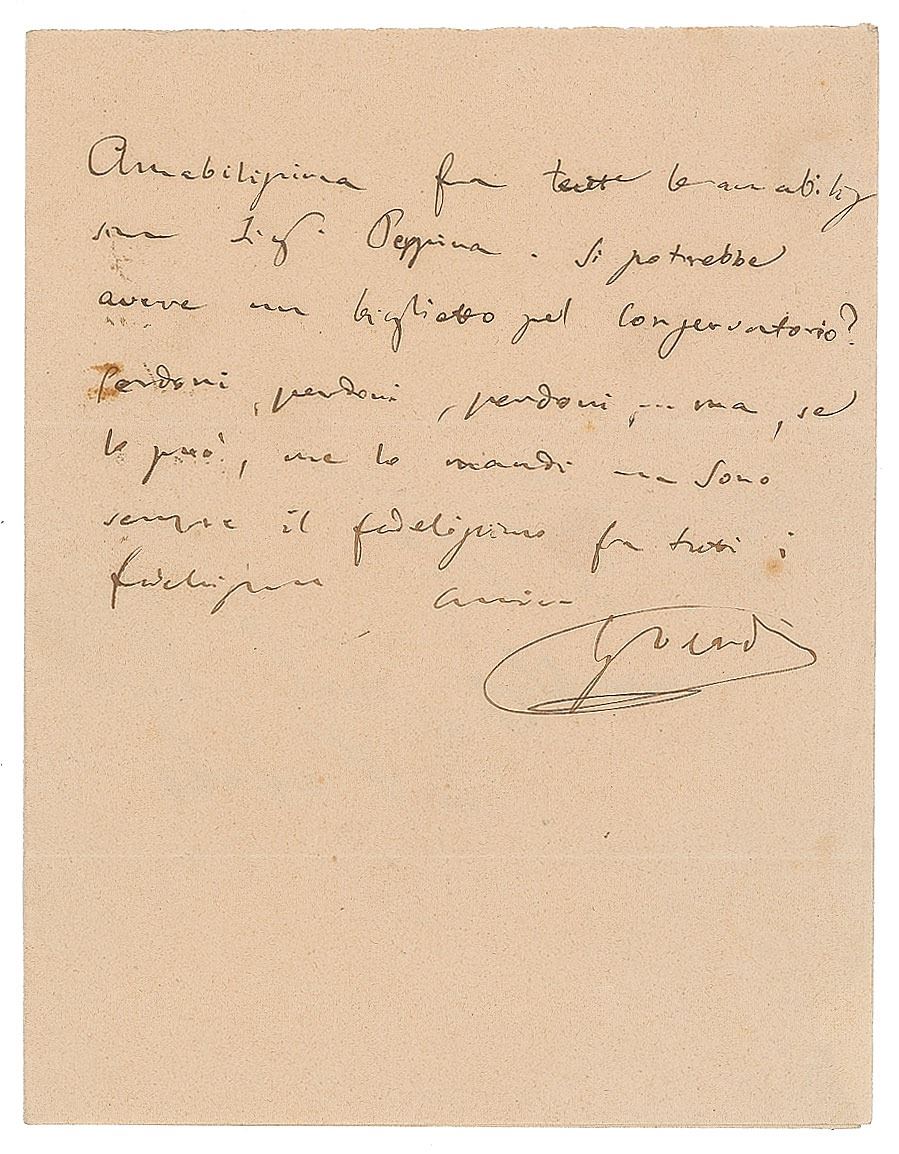 Amabilissima fra tutte le amabilis
sime Sigª Peppina. Si potrebbe
avere un biglietto pel Conservatorio?
Perdoni, perdoni, perdoni, ma, se
lo può, me lo mandi Sono
sempre il fedelissimo fra tutti i
fedelissimi
G Verdi